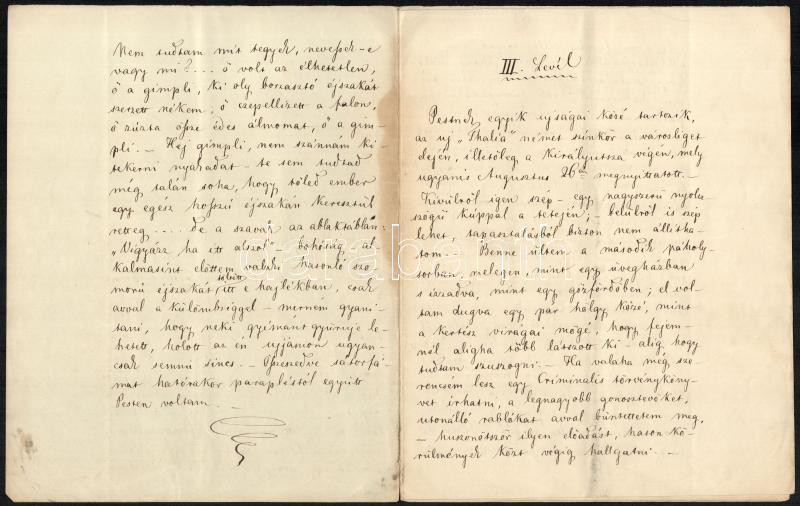 Nem tudtam mit tegyek, nevessek-e
vagy mi? ... ő volt az élhetetlen,
ő a gimpli, ki oly borzasztó éjszakát
szerzett nékem, ő czepellizett a falon,
ő zúzta össze édes álmomat, ő a gim-
pli. – Hej gimpli, nem szánnám ki-
tekerni nyakadát – te sem tudtad
még talán soha, hogy tőled ember
egy egész hosszú éjszakán keresztül
retteg .... de a szavak az ablaktáblán:
„Vigyázz ha itt alszol” – bohóság, al-
kalmasint előttem valaki hasonló szo-
morú éjszakát töltött itt e hajlékban, csak
avval a külömbséggel – merném gyaní-
tani, hogy neki gyémánt gyűrűje le-
hetett, holott az én ujjamon ugyan-
csak semmi sincs. – Összeszedve sátorfá-
mat hatórakor parapléstól együtt
Pesten voltam. –
III. Levél
Pestnek egyik ujságai közé tartozik,
az uj „Thalia” német szinkör a városliget
elején, illetőleg a Királyutsza végén, mely
ugyanis Augusztus 26án megnyittatott. –
Kivülről igen szép – egy nagyszerű nyolc-
szögű kúppal a tetején; – belülről is szép
lehet, tapasztalásból bizton nem állítha-
tom. – Benne ültem a második páholy-
sorban, melegen, mint egy üvegházban
s izzadva, mint egy gőzfördőben; el vol-
tam dugva egy pár hölgy közé, mint
a kertész virágai mögé, hogy fejem-
nél aligha több látszott ki – alig hogy
tudtam szuszogni. – Ha valaha még sze-
rencsém lesz egy Criminalis törvénykőny-
vet irhatni, a legnagyobb gonosztevőket,
utonálló rablókat avval büntettetem meg,
– huszonötször ilyen előadást, hason kö-
rülmények közt végig hallgatni. –
darabanth